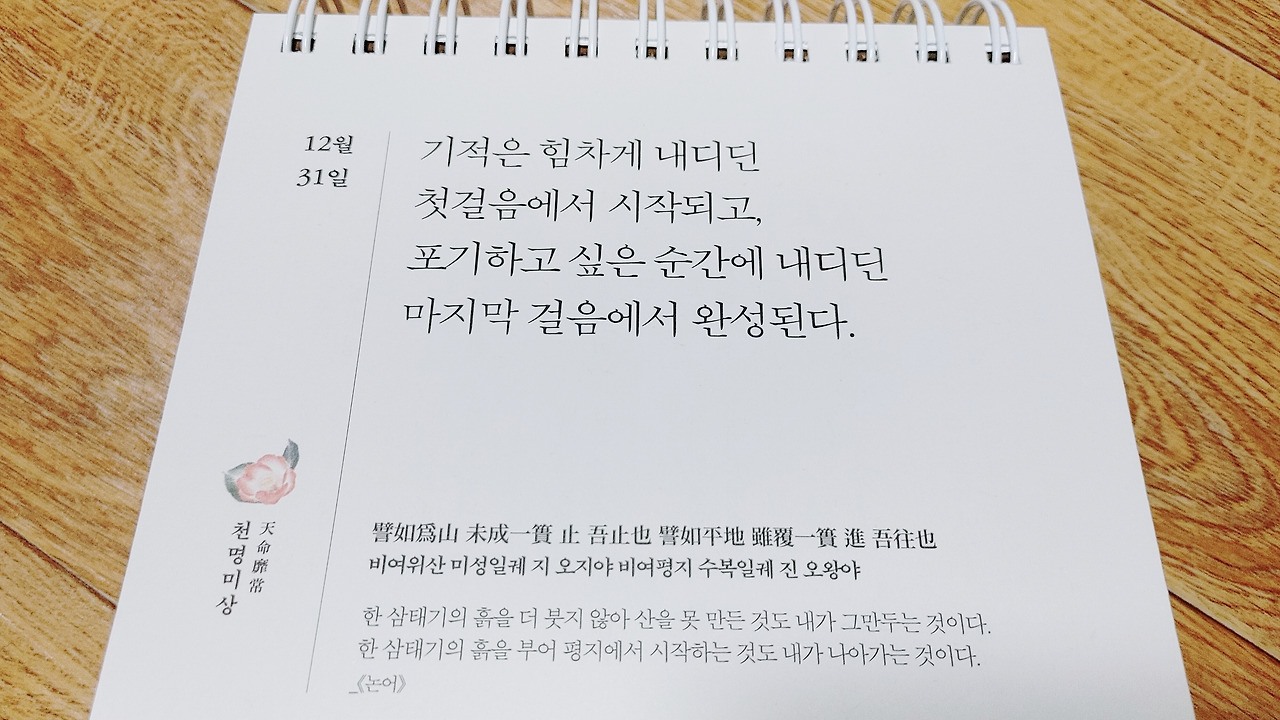 12월
31일
기적은 힘차게 내디딘
첫걸음에서 시작되고,
포기하고 싶은 순간에 내디딘
마지막 걸음에서 완성된다.
천명미상
天命靡常
譬如爲山 未成一簣 止 吾止也 譬如平地 雖覆一簣 進 吾往也
비여위산 미성일궤 지 오지야 비여평지 수복일궤 진 오왕야
한 삼태기의 흙을 더 붓지 않아 산을 못 만든 것도 내가 그만두는 것이다.
한 삼태기의 흙을 부어 평지에서 시작하는 것도 내가 나아가는 것이다.
_《논어》